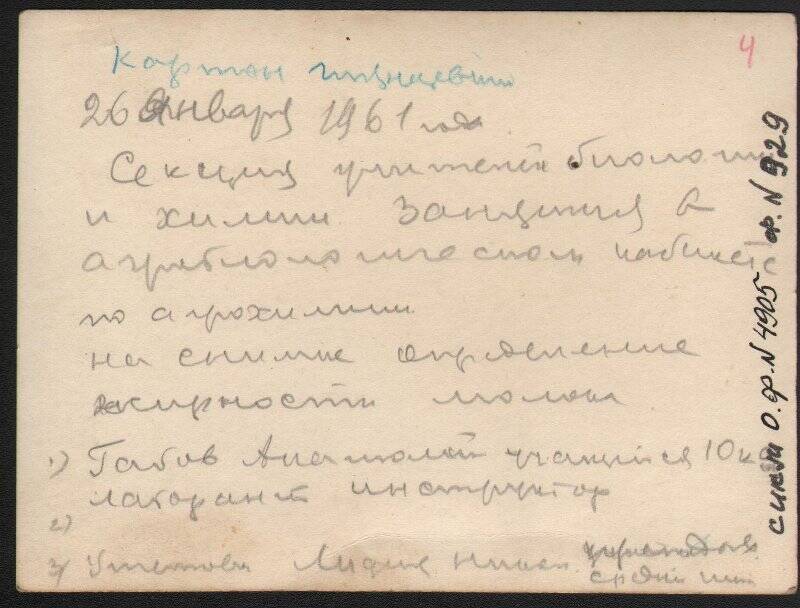 4
Картон глянцевый
26 Января 1961 года
Секция учителей биологии
и химии. Занятия в
агробиологическом кабинете
по агрохимии
на снимке определение
жирности молока
1) Габов Анатолий учащийся 10 кл
лаборант инструктор
2)
3) Лидия
средн
о.ф. N 4905 ф. N 929